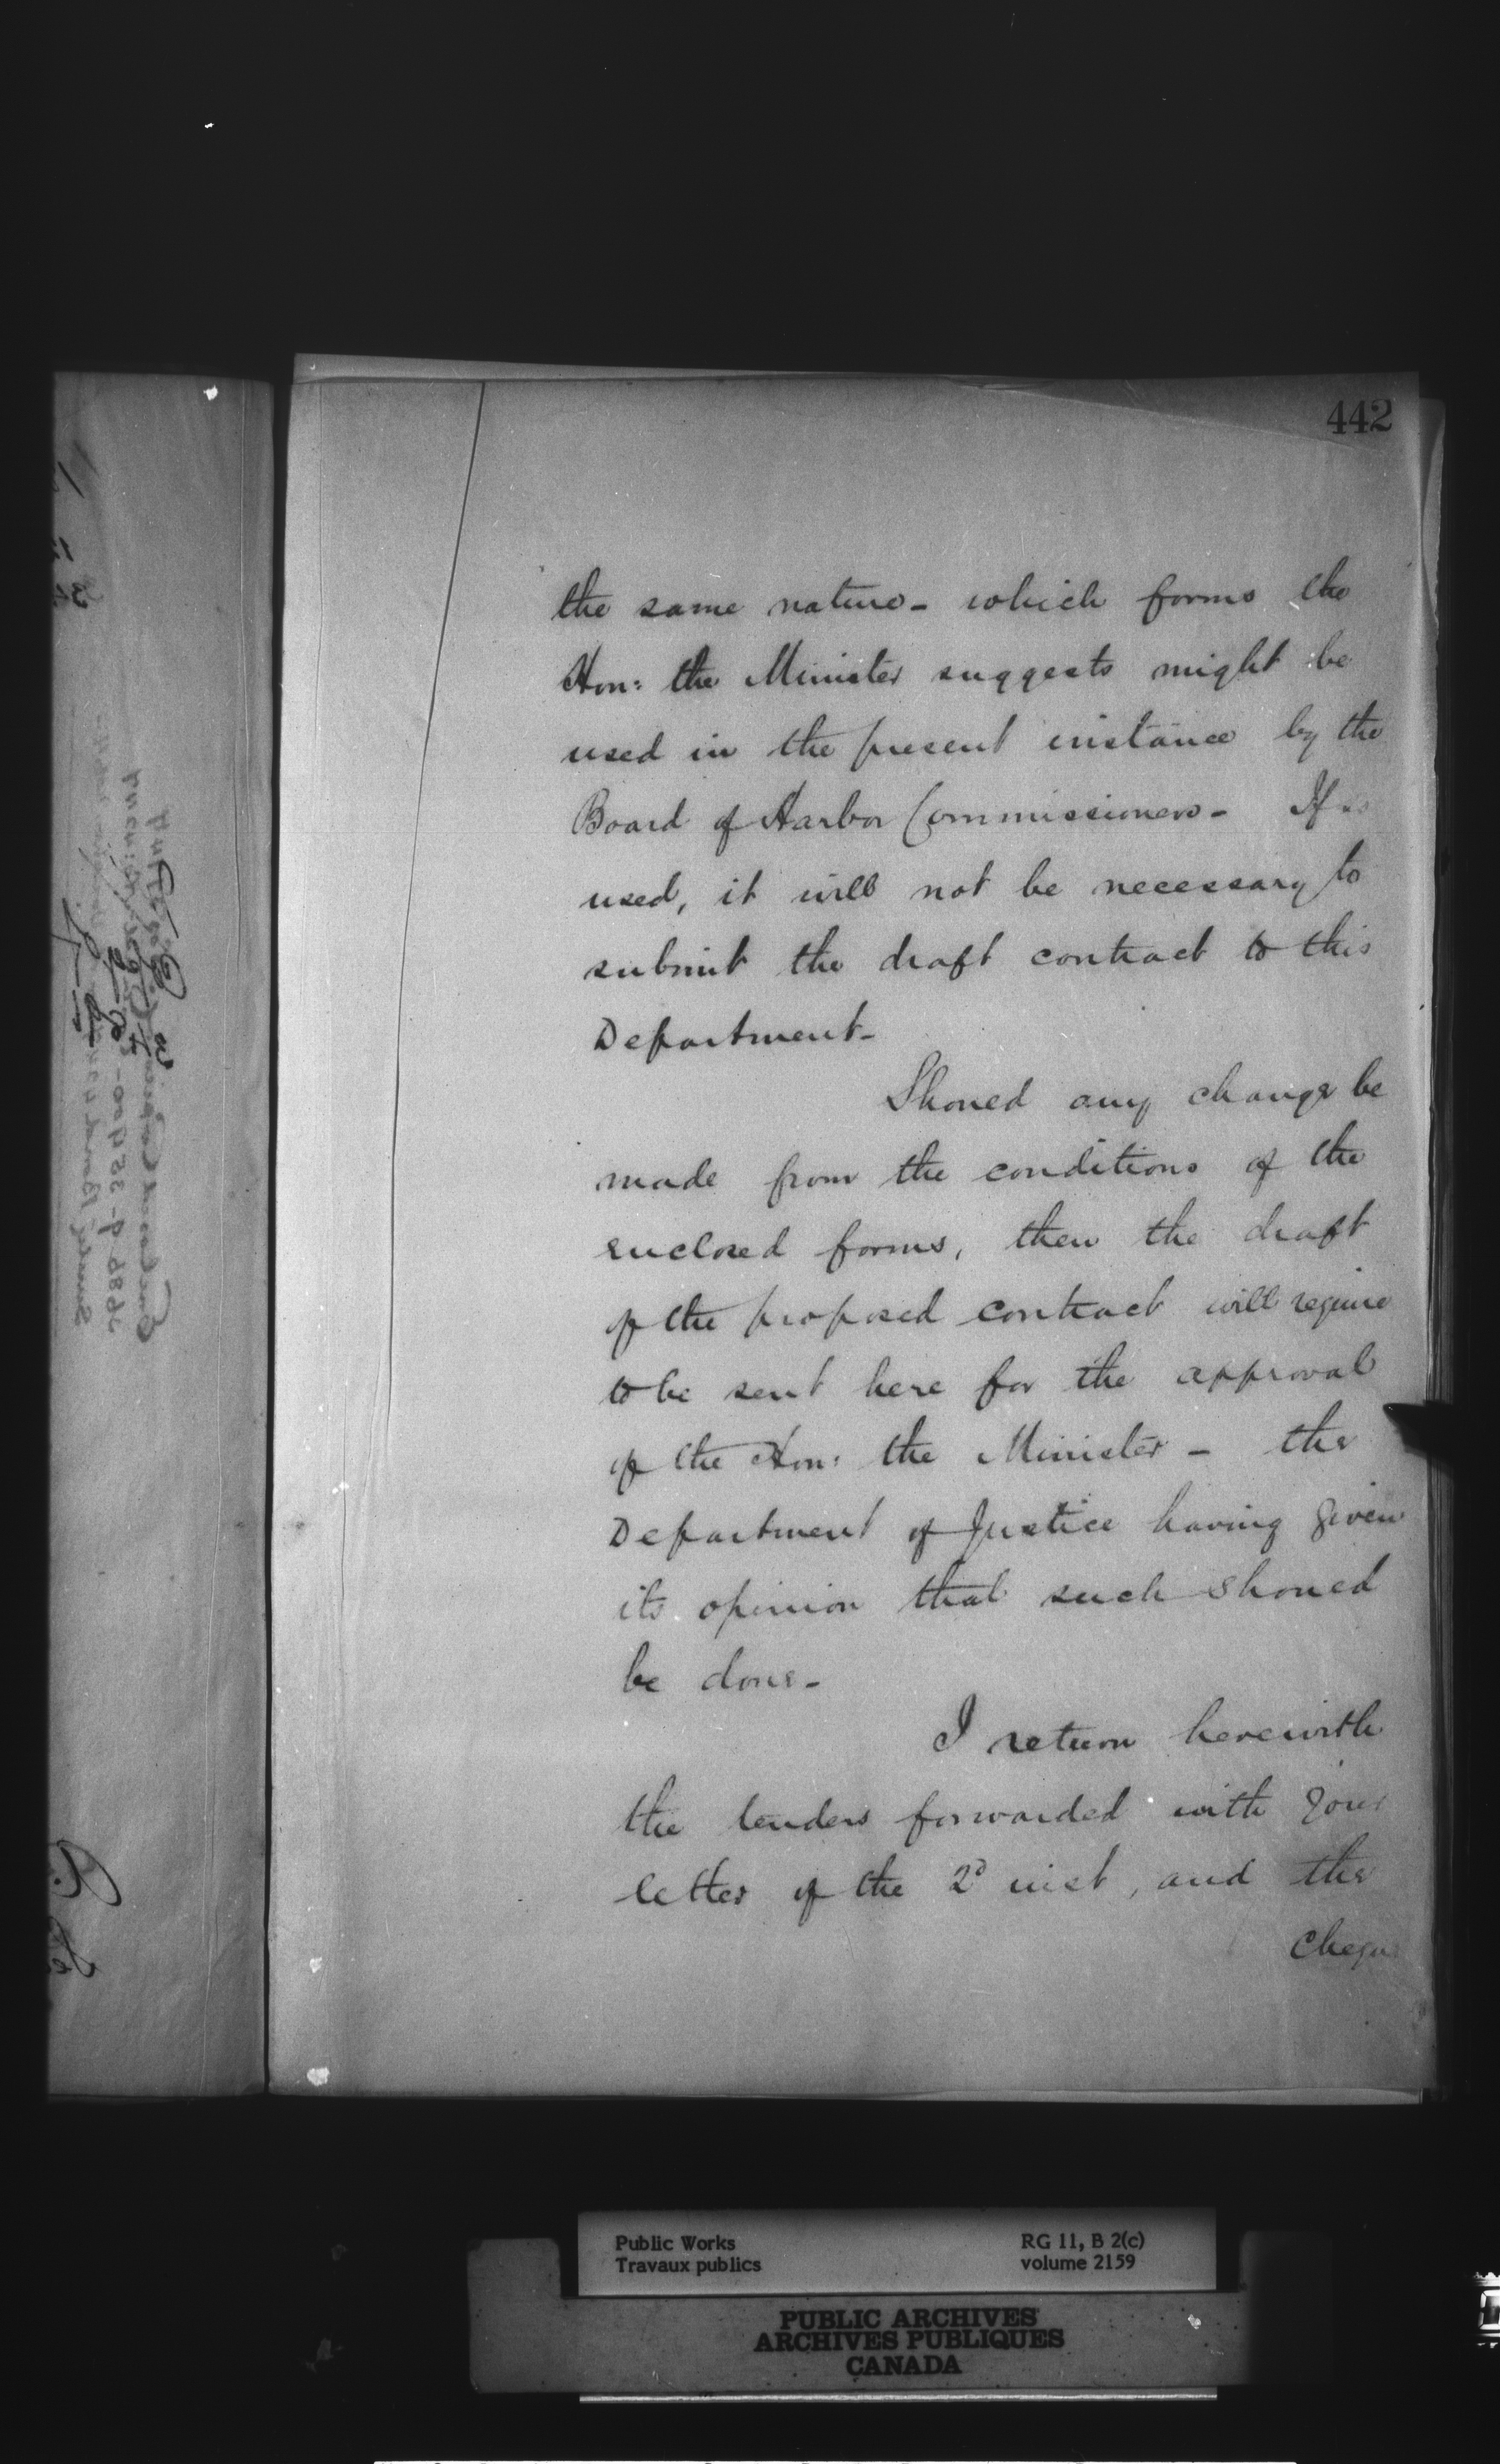 442
the same nature - which forms the
Hon: the Minister suggests might be
used in the present instance by the
Board of Harbor Commissioners - If so
used, it will not be necessary to
submit the draft contract to this
Department -
Should any change be
made from the conditions of the
enclosed forms, then the draft
of the proposed contract will require
to be sent here for the approval
of the Hon: the Minister - the
Department of Justice having given
its opinion that such should
be done -
I return herewith
the tenders forwarded with your
letter of the 2d inst, and the
Cheque
Public Works
Travaux publics
RG 11, B 2(c)
volume 2159
PUBLIC ARCHIVES
ARCHIVES PUBLIQUES
CANADA